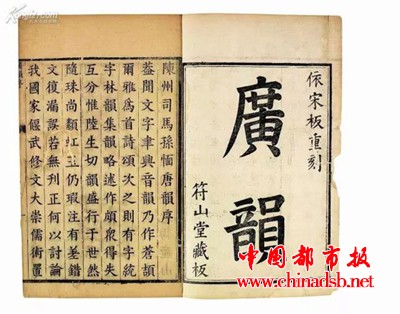 依宋板重刻
廣韻
符山堂藏板
陳州司馬孫愐唐韻序
葢聞文字聿興音韻乃作蒼頡
爾雅爲首詩頌次之則有字統
字林韻集韻略述作頗衆得失
互分惟陸生切韻盛行于世然
隨珠尚纇虹玉仍瑕注有差錯
文復漏誤若無刋正何以討論
我國家偃武修文大崇儒術置
中国都市报
www.chinadsb.net